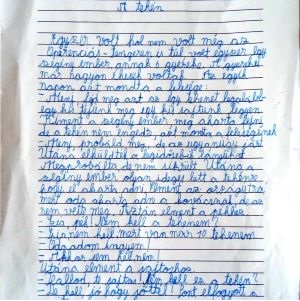 A tehén
Egyszer volt hol nem volt még az
Óperenciás-Tengeren is túl volt egyszer egy
szegény ember annak a gyereke. A gyerekei
már nagyon éhesek voltak. Az egyik
napon azt mondta a felesége:
- Menj, fejd meg azt az egy tehenet legalább
egy kis tejünk meg egy kis sajtunk legyen.
Kiment a szegény ember meg akarta fejni
de a tehén nem engedte, azt mondta a feleségének
- Menj, próbáld meg, de az ugyanúgy járt
Utána elküldték a legidősebb
Megpróbálta, de nem sikerült. Utána a
szegény ember olyan ideges lett a tehénre
hogy el akarta adni. Elment az országútra
mert oda akarta adni a kovácsnak, de az
nem vette meg. Aztán elment a pékhez
- Te pék! Nem kell a tehenem?
- Nem kell, mert van már 10 tehenem
- Odaadom ingyen!
- Akkor sem kell nekem!
Utána elment a sajtoshoz.
- Hallod, te sajtos! Nem kell ez a tehén?
- De kell, jó hogy jöttél! Pont elfogyott a